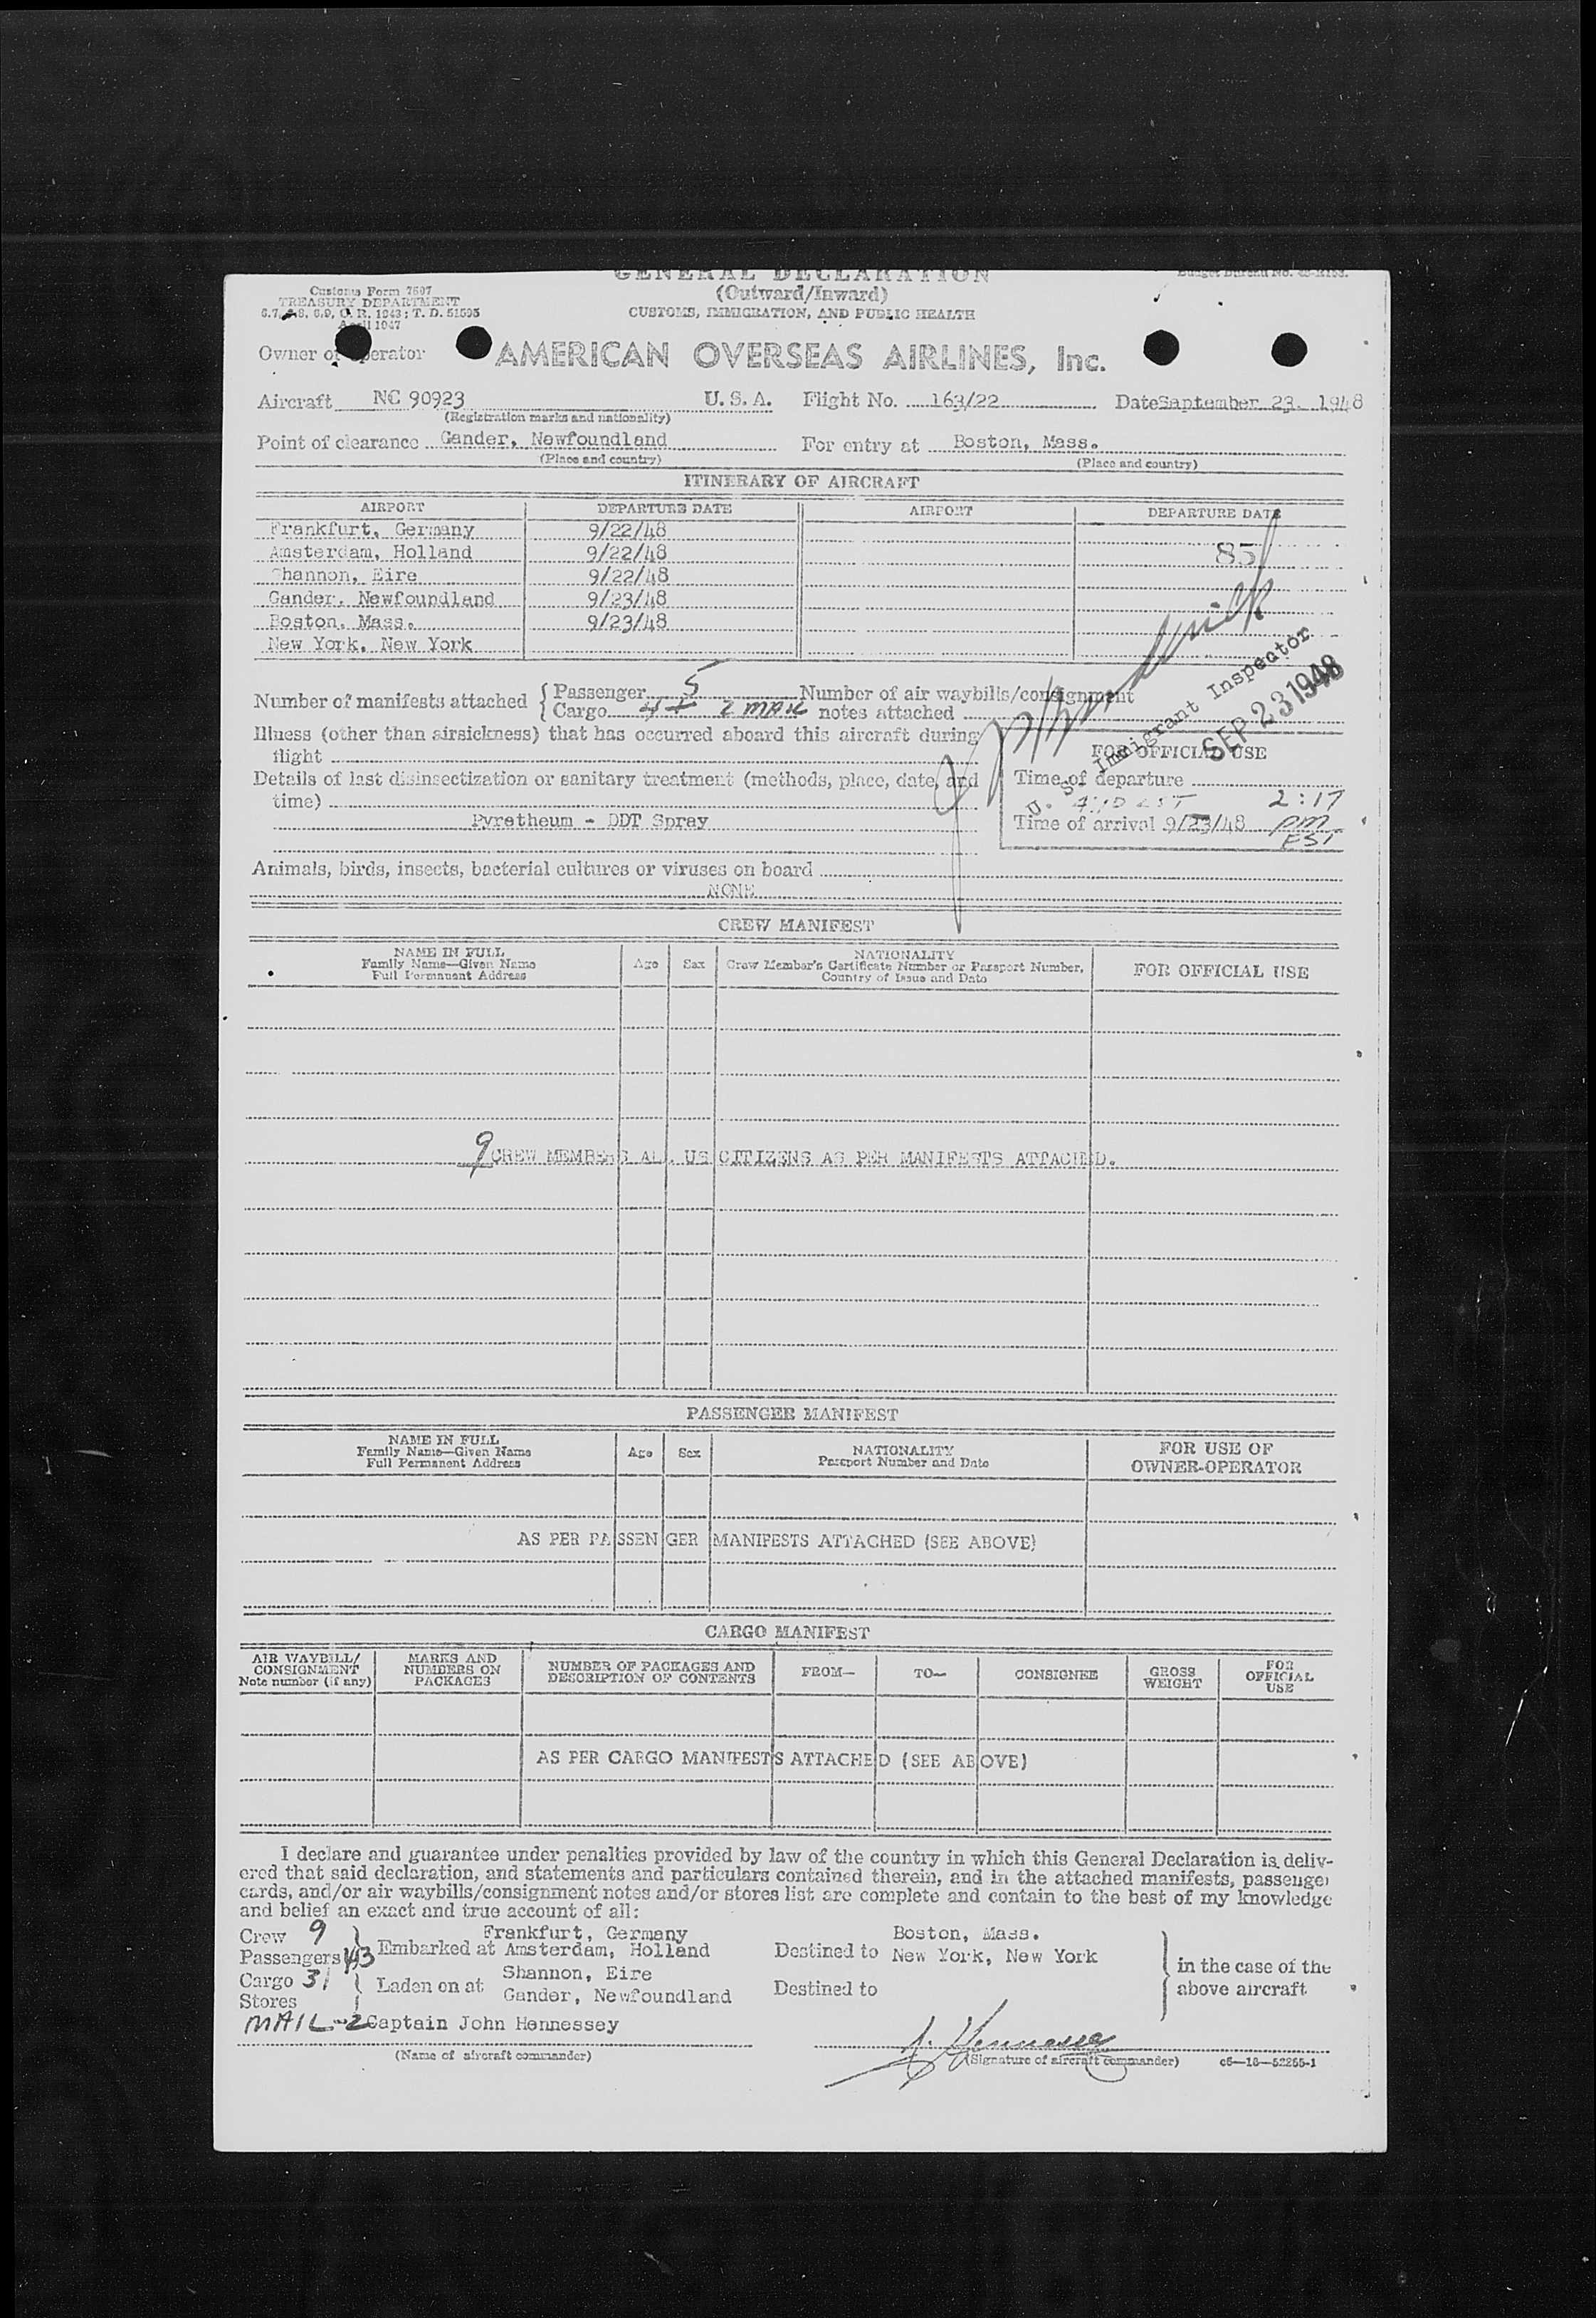 GENERAL DECLARATION
(Outward/Inward)
CUSTOMS, IMMIGRATION, AND PUBLIC HEALTH
Customs Form 7507
TREASURY DEPARTMENT
April 1947
Owner or Operator AMERICAN OVERSEAS AIRLINES, Inc.
Aircraft NC 90923 U. S. A. Flight No. 163/22 Date September 23, 1948
(Registration marks and nationality)
Point of clearance Gander, Newfoundland For entry at Boston, Mass.
(Place and country) (Place and country)
ITINERARY OF AIRCRAFT
AIRPORT DEPARTURE DATE AIRPORT DEPARTURE DATE
Frankfurt, Germany 9/22/48
Amsterdam, Holland 9/22/48 85
Shannon, Eire 9/22/48
Gander, Newfoundland 9/23/48
Boston, Mass. 9/23/48
New York, New York
U. S. Immigrant Inspector
SEP 23 1948
Number of manifests attached { Passenger 5 Number of air waybills/consignment
Cargo 2 MAIL notes attached
Illness (other than airsickness) that has occurred aboard this aircraft during
flight
FOR OFFICIAL USE
Details of last disinsectization or sanitary treatment (methods, place, date, and
time)
Time of departure
2:17
Pyretheum - DDT Spray
Time of arrival 9/23/48 pm
EST
Animals, birds, insects, bacterial cultures or viruses on board
NONE
CREW MANIFEST
NAME IN FULL
Family Name—Given Name
Full Permanent Address
Age Sex
NATIONALITY
Crew Member's Certificate Number or Passport Number,
Country of Issue and Date
FOR OFFICIAL USE
9 CREW MEMBERS ALL US CITIZENS AS PER MANIFESTS ATTACHED.
PASSENGER MANIFEST
NAME IN FULL
Family Name—Given Name
Full Permanent Address
Age Sex
NATIONALITY
Passport Number and Date
FOR USE OF
OWNER-OPERATOR
AS PER PASSENGER MANIFESTS ATTACHED (SEE ABOVE)
CARGO MANIFEST
AIR WAYBILL/
CONSIGNMENT
Note number (if any)
MARKS AND
NUMBERS ON
PACKAGES
NUMBER OF PACKAGES AND
DESCRIPTION OF CONTENTS
FROM—
TO—
CONSIGNEE
GROSS
WEIGHT
FOR
OFFICIAL
USE
AS PER CARGO MANIFESTS ATTACHED (SEE ABOVE)
I declare and guarantee under penalties provided by law of the country in which this General Declaration is deliv-
ered that said declaration, and statements and particulars contained therein, and in the attached manifests, passenger
cards, and/or air waybills/consignment notes and/or stores list are complete and contain to the best of my knowledge
and belief an exact and true account of all:
Crew 9 Frankfurt, Germany Boston, Mass.
Passengers 43 Embarked at Amsterdam, Holland Destined to New York, New York
in the case of the
Cargo 31 Laden on at Shannon, Eire Destined to above aircraft
Stores Gander, Newfoundland
MAIL-2 Captain John Hennessey
J. Hennessey
(Name of aircraft commander) (Signature of aircraft commander) c6—16—52255-1